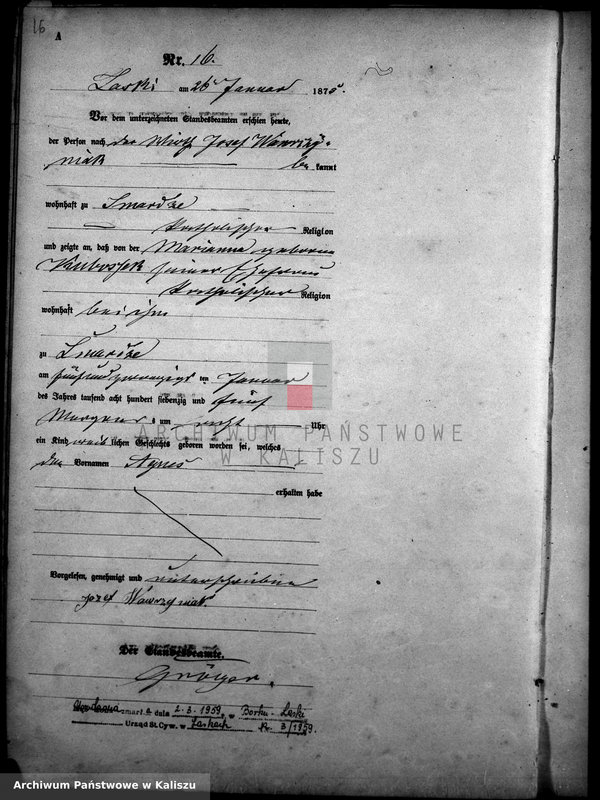 16
A
Nr. 16.
Laski am 26 Januar 1875.
Vor dem unterzeichneten Standesbeamten erschien heute,
der Person nach der Wirth Josef Wawrzy=
niak be kannt
wohnhaft zu Smardze
katholischer Religion
und zeigte an, daß von der Marianna geborene
Kubossek seiner Ehefrau
katholischer Religion
wohnhaft bei ihm
zu Smardze
am fünfundzwanzigsten Januar
des Jahres tausend acht hundert siebenzig und fünf
Morgens um acht Uhr
ein Kind weib lichen Geschlechts geboren worden sei, welches
den Vornamen Agnes
erhalten habe
Vorgelesen, genehmigt und unterschrieben
Jozef Wawrzyniak
Der Standesbeamte.
Gröger.
zmarł a dnia 2.3.1959. w Borku - Laski
Urząd St. Cyw. w Laskach Nr. 3/1959.
ARCHIWUM PAŃSTWOWE
W KALISZU
Archiwum Państwowe w Kaliszu